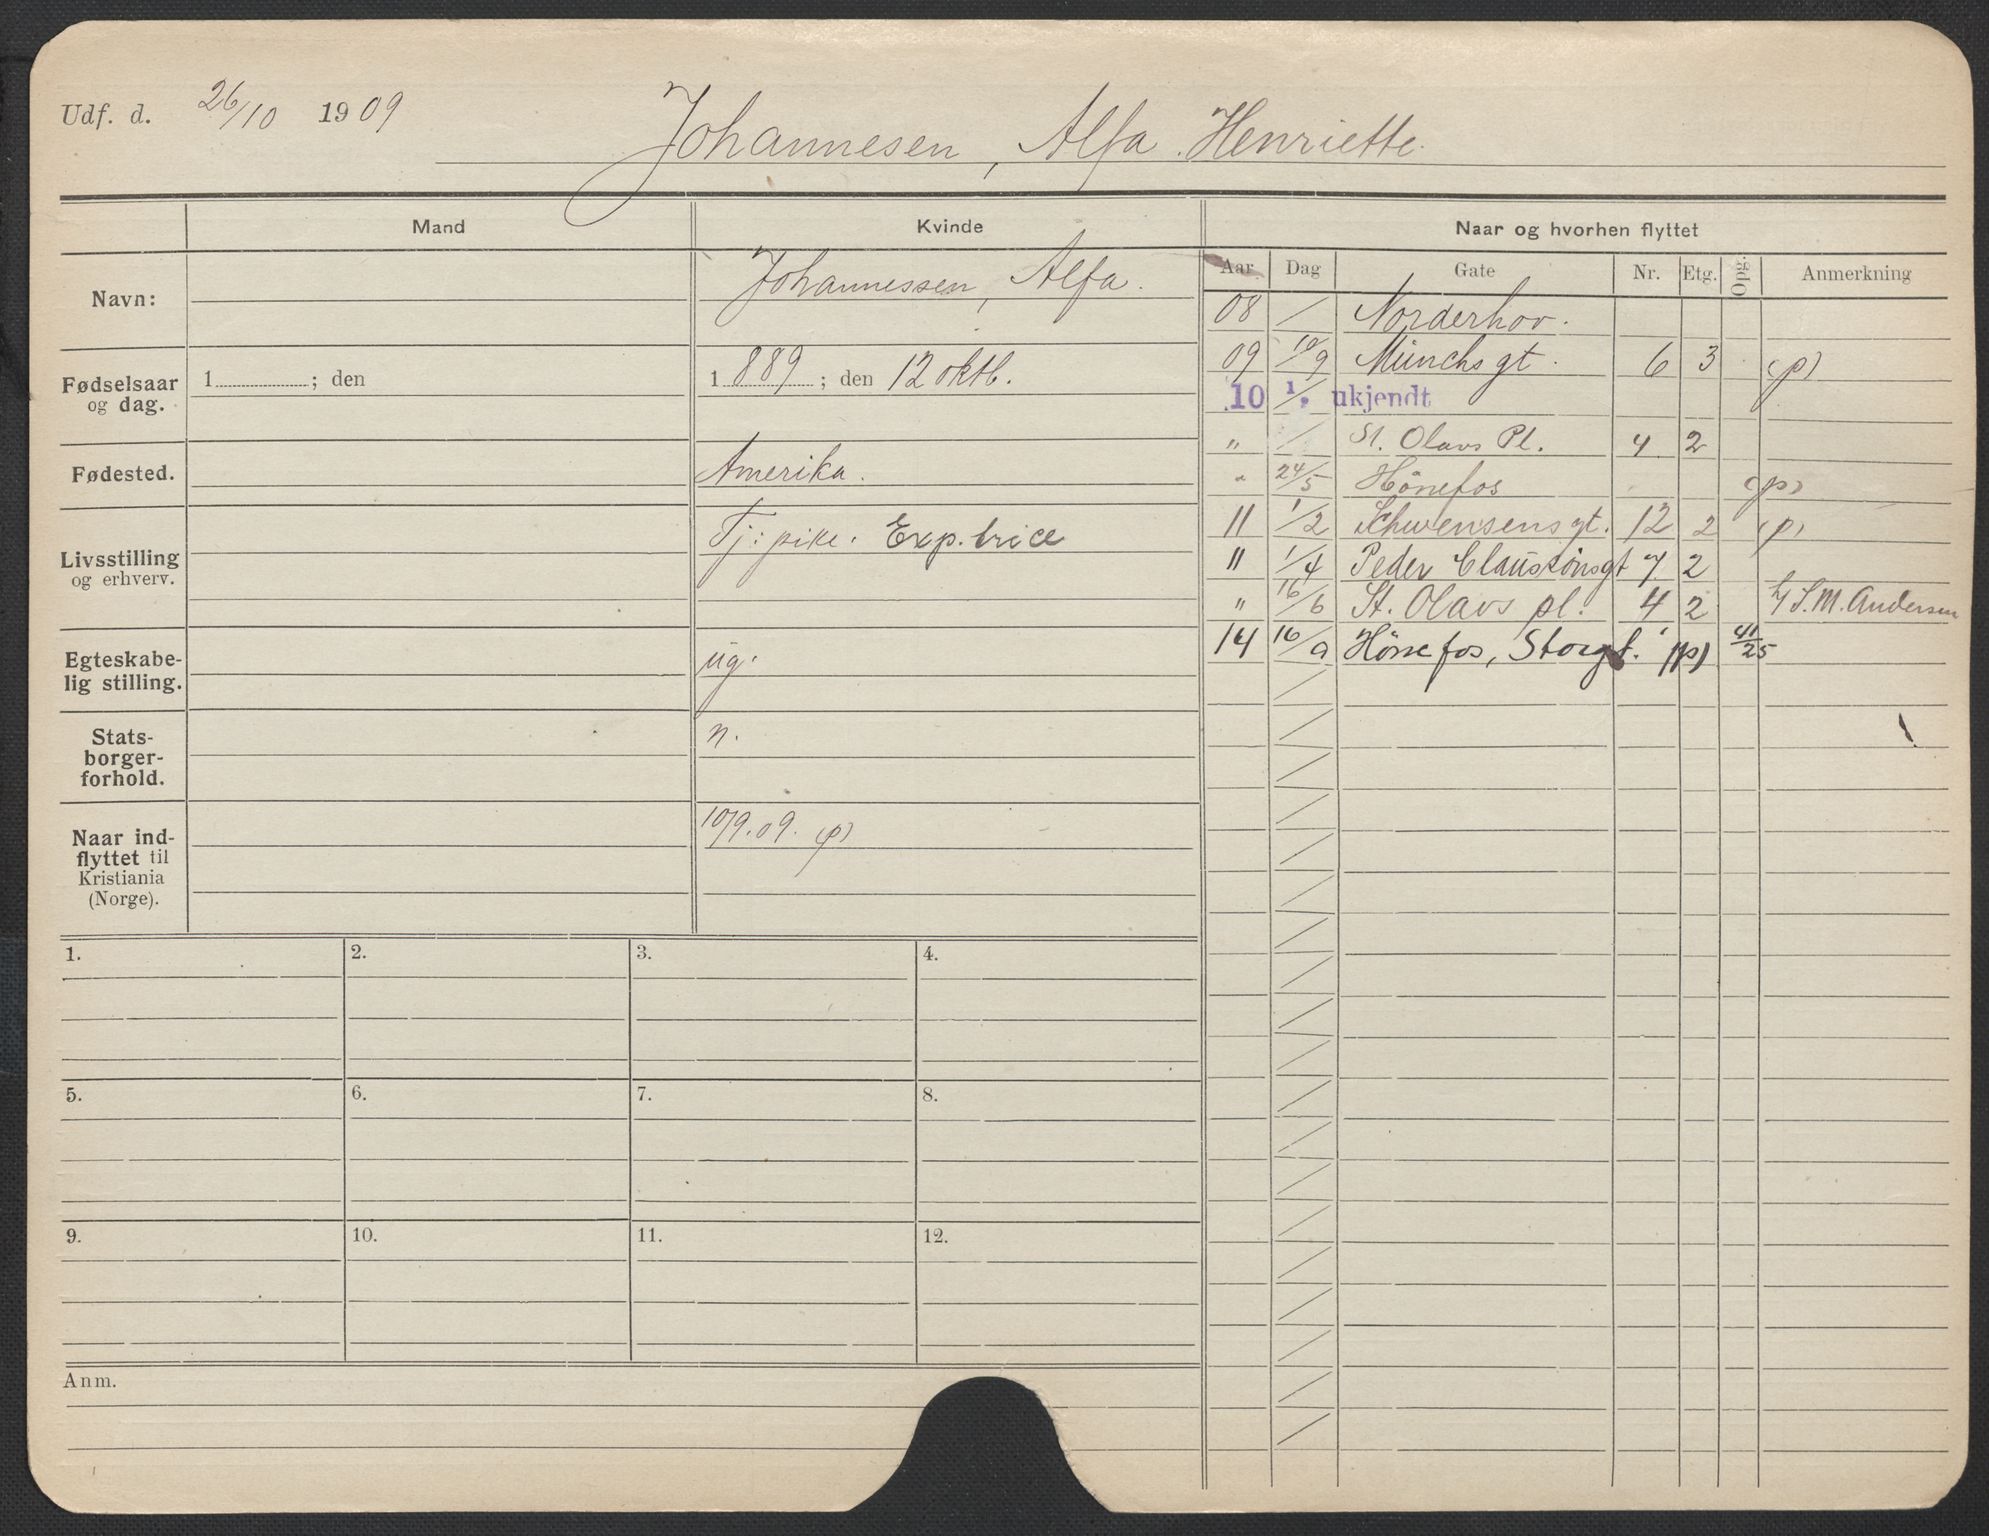 Udf. d. 26/10 1909 Johannesen, Alfa Henriette.
Mand Kvinde Naar og hvorhen flyttet
Aar. Dag Gate Nr. Etg. Opg. Anmerkning
Navn: Johannessen, Alfa.
Fødselsaar
og dag.
1 ; den
1889 ; den 12 oktb.
Fødested. Amerika.
Livsstilling
og erhverv.
Tj: pike. Exp.trice
Egteskabe-
lig stilling.
ug.
Stats-
borger-
forhold.
n.
Naar ind-
flyttet til
Kristiania
(Norge).
10/9.09. (p)
08 / Norderhov.
09 10/9 Münchs gt. 6 3 (p)
10 1/2 ukjendt
" / St. Olavs Pl. 4 2
" 24/5 Hönefos (p)
11 1/2 Schwensens gt. 12 2 (p)
11 1/4 Peder Claussönsgt 7 2
" 16/6 St. Olavs pl. 4 2 h/ S.M. Andersen
14 16/9 Hönefos, Storgt. (p) 41/25
1. 2. 3. 4.
5. 6. 7. 8.
9. 10. 11. 12.
Anm.